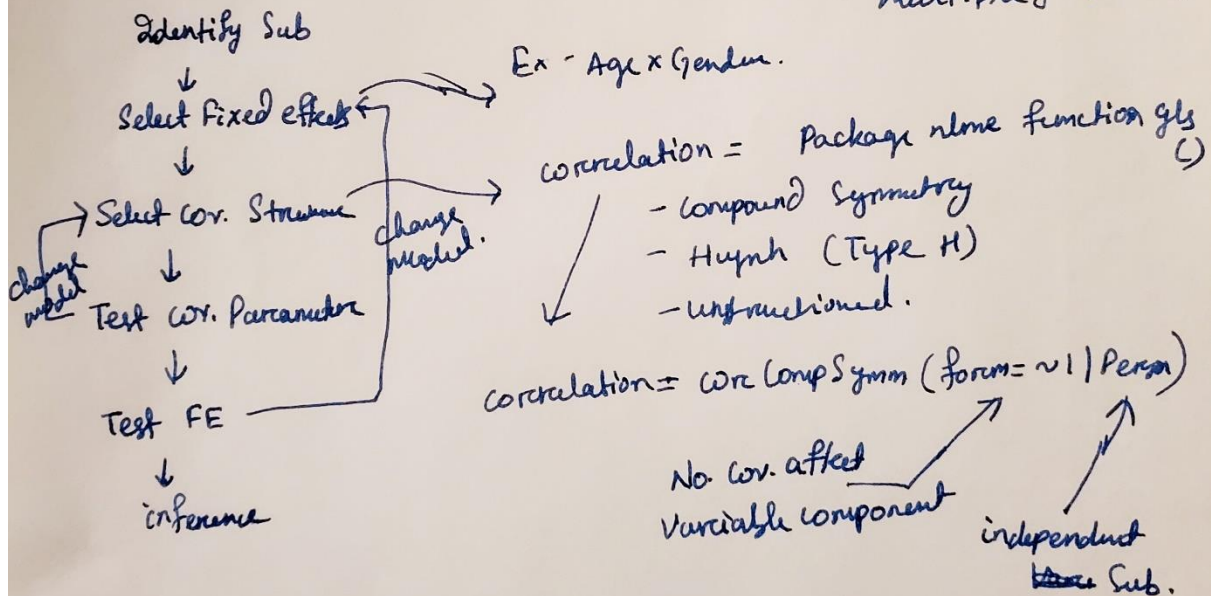 Identify Sub
↓
Select Fixed effects
↓
Select Cov. Structure
↓
Test Cov. Parameter
↓
Test FE
↓
inference
change
model
change
model.
Ex - Age x Gender.
correlation = Package nlme function gls
()
- Compound Symmetry
- Huynh (Type H)
- unstructioned.
correlation = corCompSymm (form= ~1 | Person)
No. Cov. affect
variable component
independent
Sub.